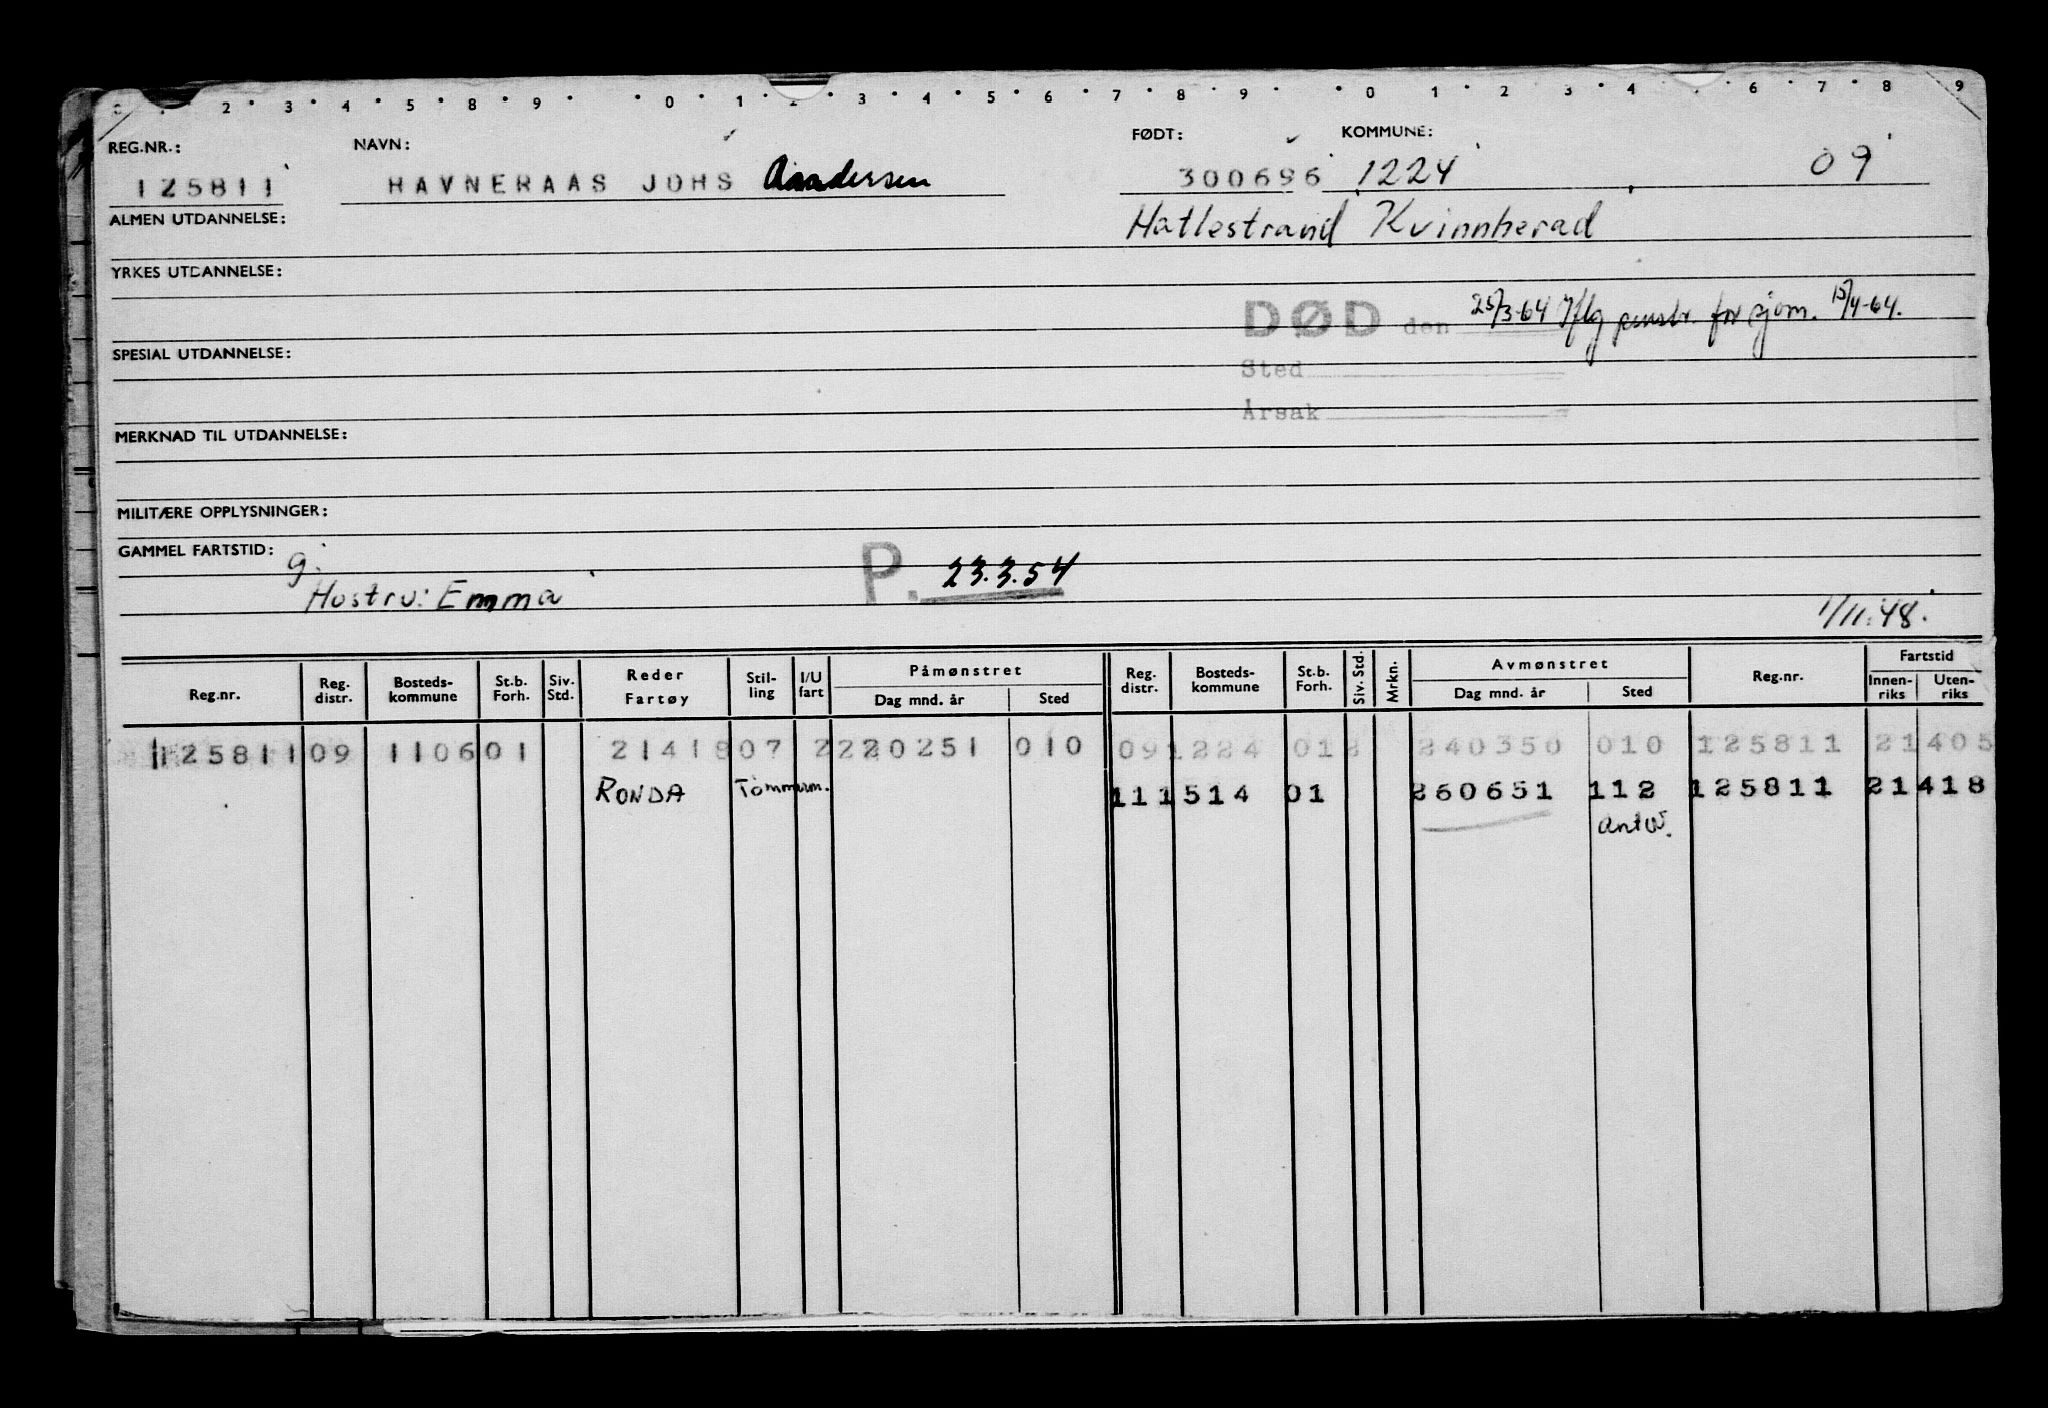 2 3 4 5 8 9 0 1 2 3 4 5 6 7 8 9 0 1 2 3 4 6 7 8 9
REG.NR.: NAVN: FØDT: KOMMUNE:
125811 HAVNERAAS JOHS Aandersen 300696 1224 09
ALMEN UTDANNELSE: Hatlestrand Kvinnherad
YRKES UTDANNELSE:
DØD den 25/3-64 Iflg penstr. for sjøm. 15/4-64.
SPESIAL UTDANNELSE: Sted
Årsak
MERKNAD TIL UTDANNELSE:
MILITÆRE OPPLYSNINGER:
GAMMEL FARTSTID: g. P. 23.3.54
Hustru: Emma 1/11.48.
Reg.nr. Reg. distr. Bosteds-kommune St.b. Forh. Siv. Std. Reder Fartøy Stil-ling I/U fart Påmønstret Dag mnd. år Sted Reg. distr. Bosteds-kommune St.b. Forh. Siv. Std. Mrkn. Avmønstret Dag mnd. år Sted Reg.nr. Fartstid Innen-riks Uten-riks
125811 09 1106 01 21418 07 2 220251 010 09 1224 01 2 240350 010 125811 21405
RONDA Tømmerm. 11 1514 01 260651 112 125811 21418
Antw.